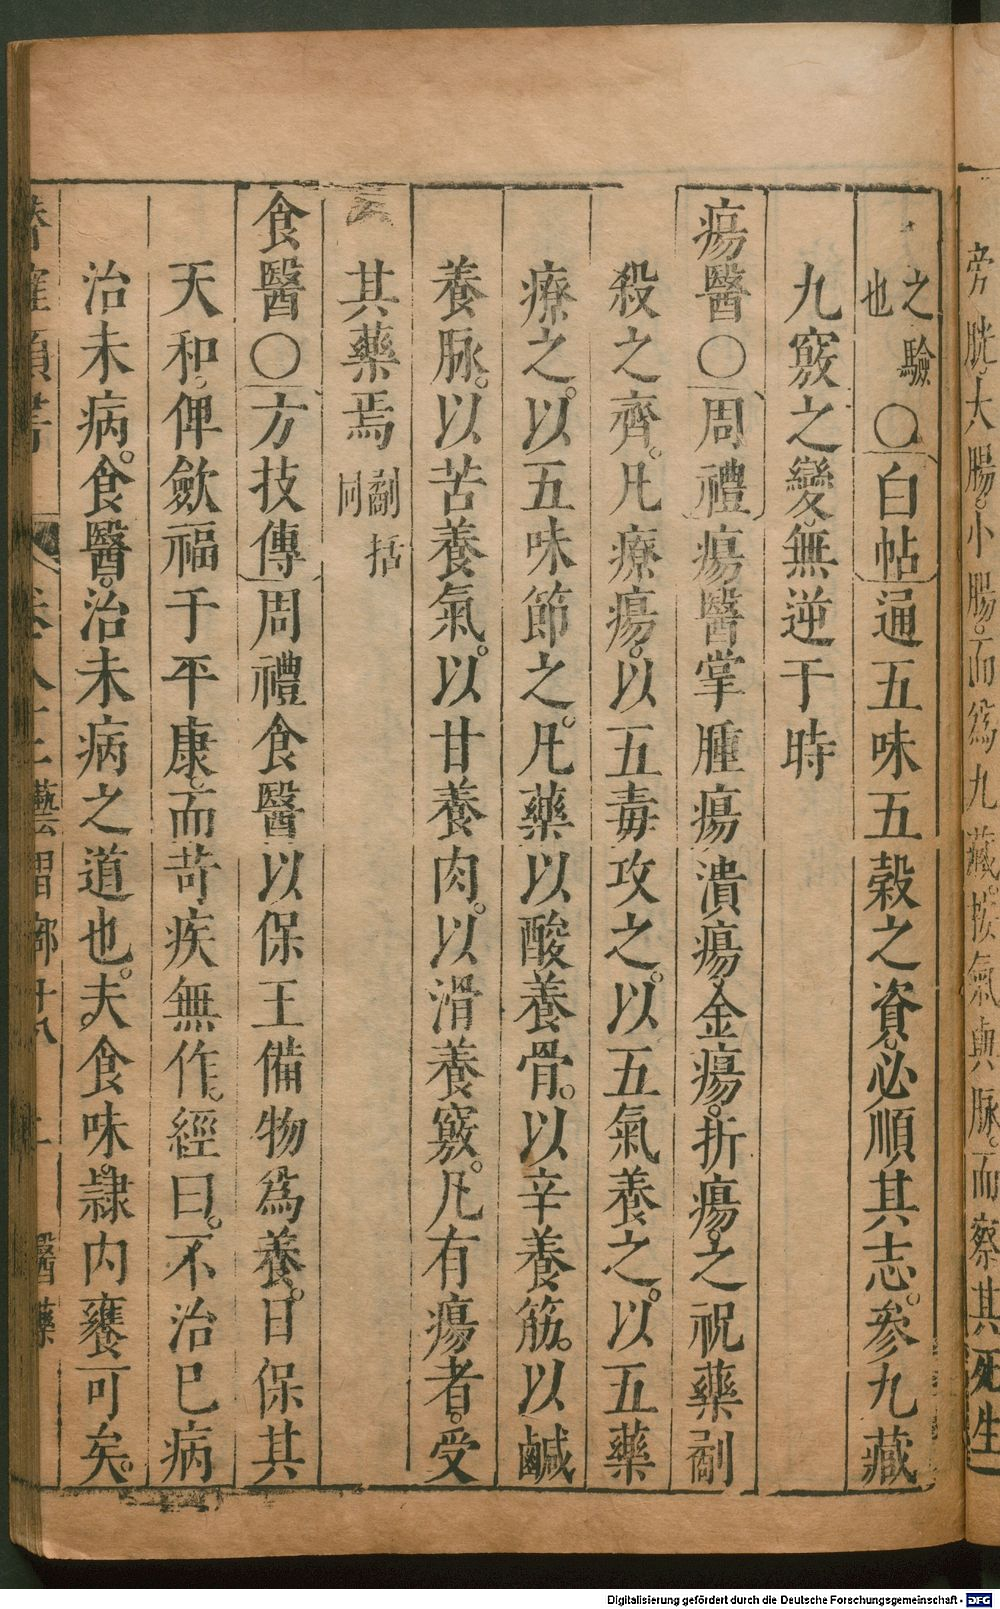 旁胱。大腸。小腸。而爲九藏。按氣與脉。而察其死生
之驗也○白帖通五味五穀之資。必順其志。參九藏
九竅之變。無逆于時
瘍醫○周禮瘍醫掌腫瘍潰瘍。金瘍。折瘍。之祝藥劀
殺之齊。凡療瘍。以五毒攻之。以五氣養之。以五藥
療之。以五味節之。凡藥以酸養骨。以辛養筋。以鹹
養脉。以苦養氣。以甘養肉。以滑養竅。凡有瘍者。受
其藥焉劀括同
食醫○方技傳周禮食醫以保王備物爲養。日保其
天和。俾歛福于平康。而苛疾無作。經曰。不治已病
治未病。食醫。治未病之道也。夫。食味。隷內饔可矣。
卷八十三 藝習部十八 二 醫藥
Digitalisierung gefördert durch die Deutsche Forschungsgemeinschaft - DFG